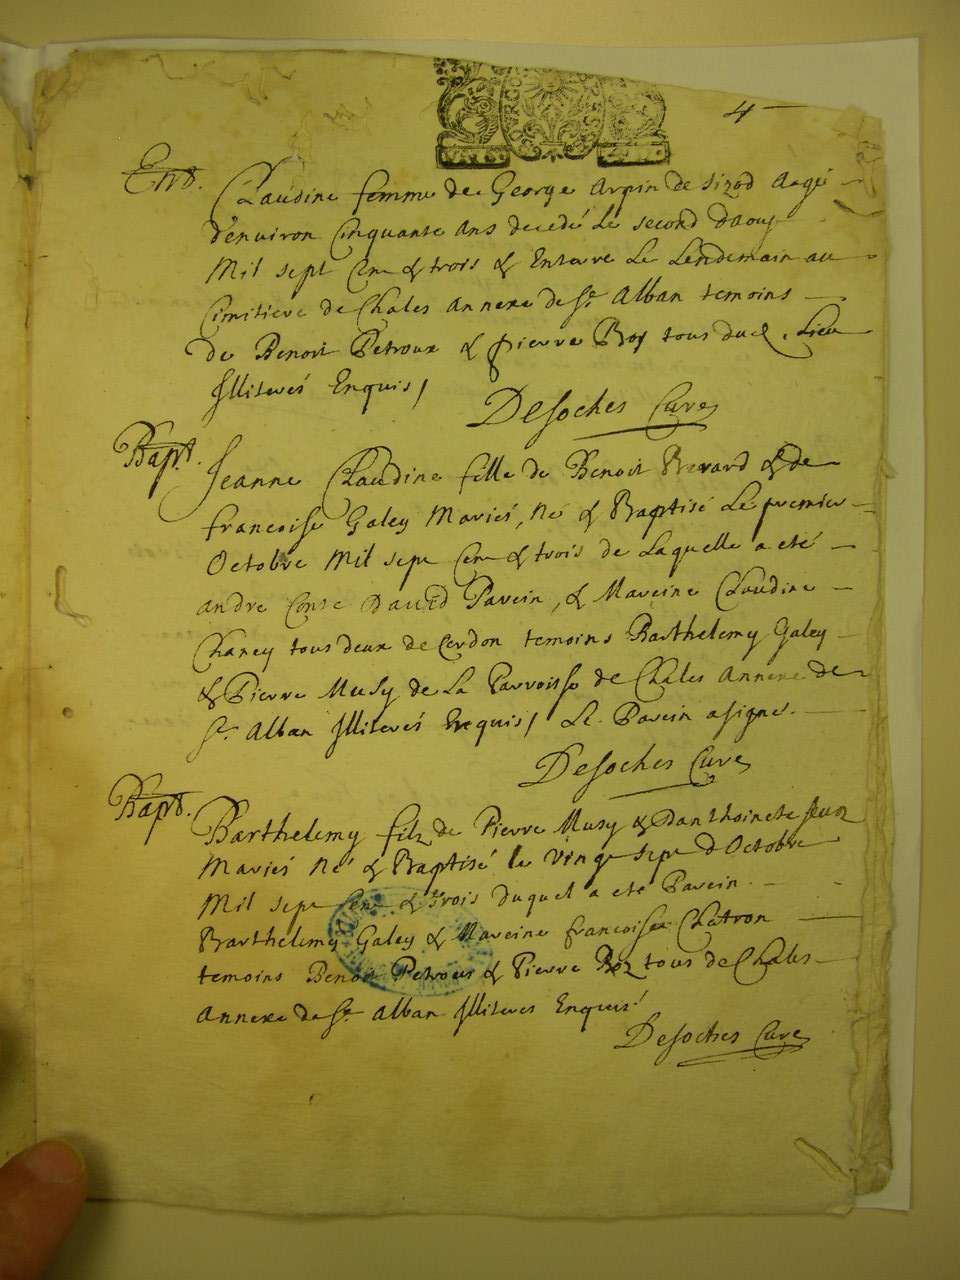 4
Ent.
Claudine femme de George Arpin de Sizod Aagé
d'enuiron Cinquante Ans decedé Le second d'aoust
Mil sept Cent & trois & Enterré Le Lendemain au
Cimitiere de Chales Annexe de St. Alban temoins
de Benoit Petroux & pierre Roy tous dud. Lieu
Jlliterés Enquis /
Desoches Curé
Bapt.
Jeanne Claudine fille de Benoit Brevard & de
francoise Galey Mariés, Né & Baptisé Le premier
Octobre Mil sept Cent & trois de Laquelle a eté
andre David Parein, & Mareine Claudine
Charey tous deux de Cerdon temoins Barthelemy Galey
& Pierre Musy de La Parroisse de Chales Annexe de
St. Alban Jlliterés Enquis / Le Parein a signer.
Desoches Curé
Bapt.
Barthelemy filz de Pierre Musy & Danthoinete
Mariés Né & Baptisé le Vingt sept d'Octobre
Mil sept Cent & trois duquel a eté Parein
Barthelemy Galey & Mareine francoise Chatron
temoins Benoit Petroux & Pierre Roz tous de Chales
Annexe de St. Alban Jlliteres Enquis
Desoches Curé